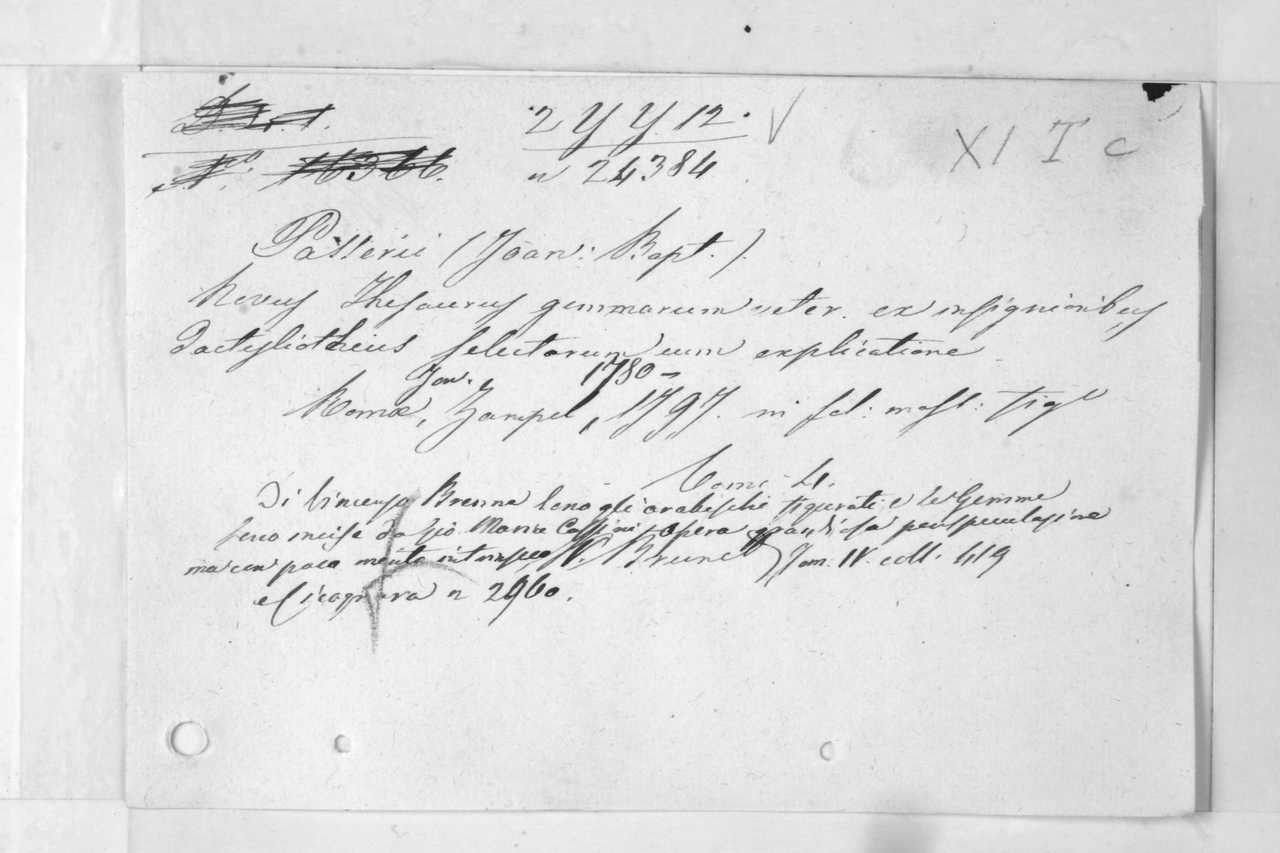 2 Y Y. 12. V
XI T c
No. 16366. n 24384
Passerii (Joan: Bapt.).
Novus Thesaurus gemmarum veter. ex insignioribus
dactyliothecis selectarum cum explicatione
Jou. 1780 –
Romæ, Zampel, 1797. in fol: mass: fig
Tomi 4.
Di Vincenzo Brenna sono gli arabischi figurati e le Gemme
sono incise da Gio Maria Cassini, opera grandiosa per speculazione
ma con poca mente intrapresa V. Brunet Tom. IV. coll. 419
e Cicognara n 2960.